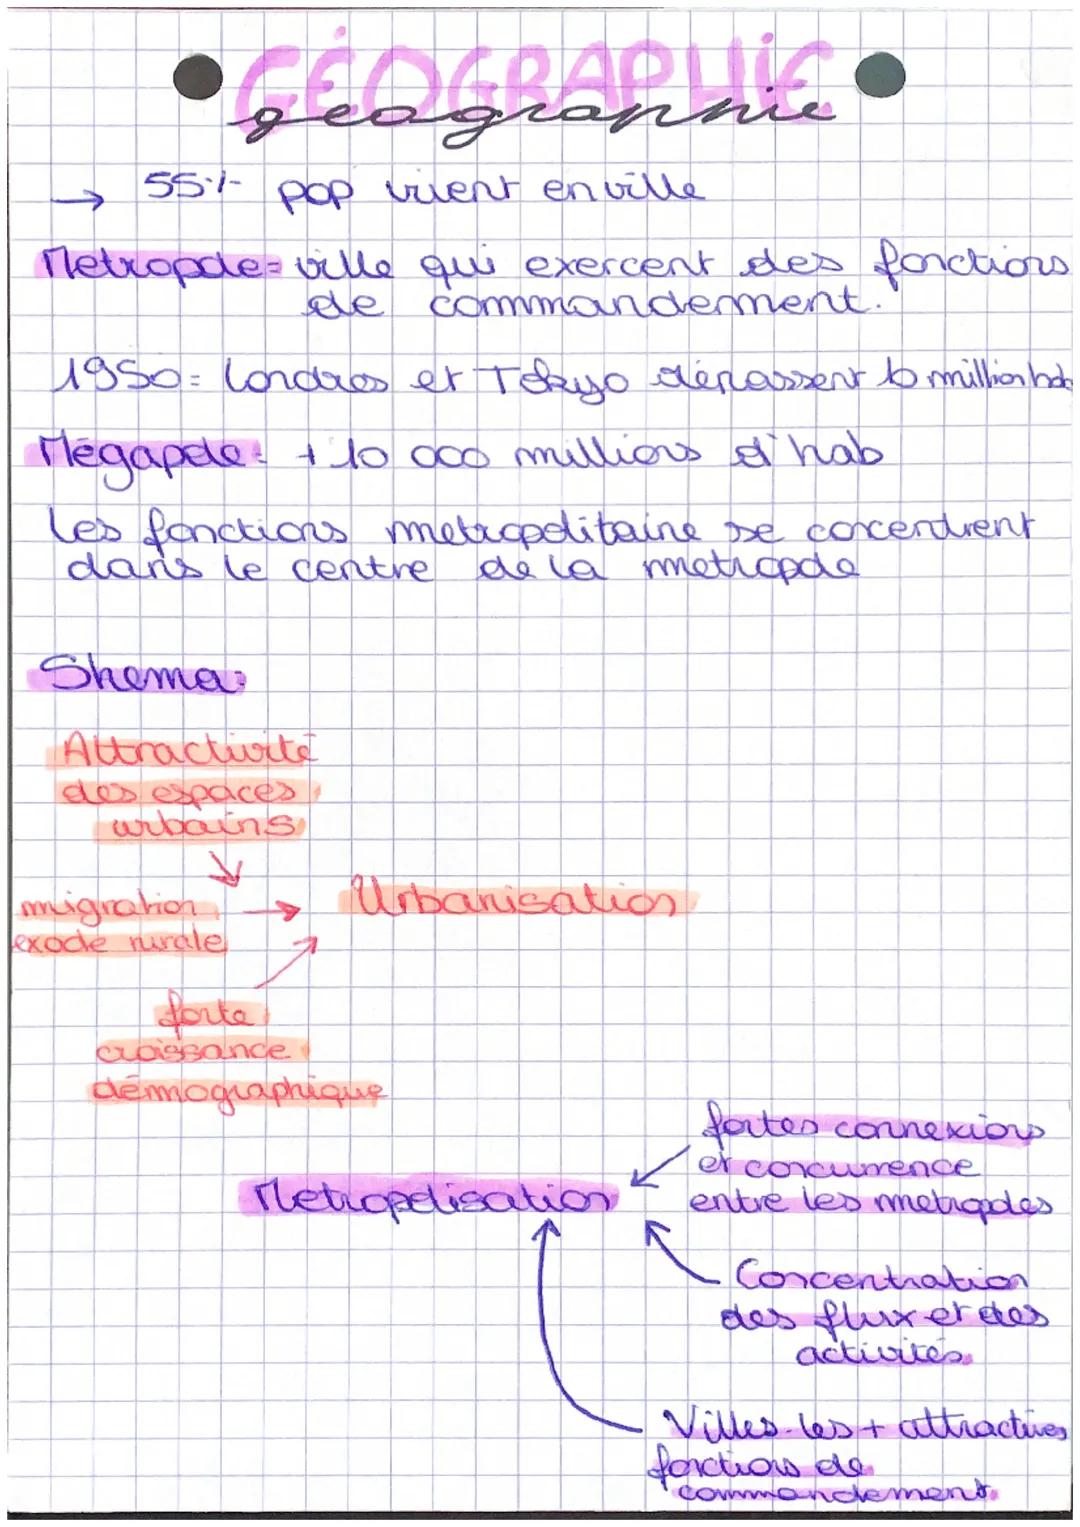 GÉOGRAPHIE
géographie
→ 55% pop vivent en ville
Metropole = ville qui exercent des fonctions
de commandement.
1950 = Londres et Tokyo dépassent 10 million hab
Mégapole : + 10 000 millions d'hab
les fonctions metropolitaine se concentrent
dans le centre de la metropole
Shema :
Attractivité
des espaces
urbains
migration
exode rurale
→ Urbanisation
forte
croissance
démographique
fortes connexions
et concurrence
entre les metropoles
Metropolisation
Concentration
des flux et des
activités.
Villes les + attractives
fonctions de
commandement.